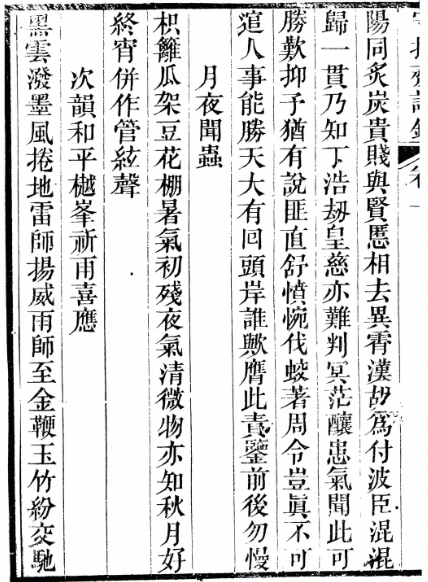 陽同炙炭貴賤與賢愚相去異霄漢胡爲付波臣混混
歸一貫乃知下浩刼皇慈亦難判冥茫釀患氣聞此可
勝歎抑予猶有說匪直舒憤惋伐蛟著周令豈眞不可
逭人事能勝天大有囘頭岸誰歟膺此責鑒前後勿慢
月夜聞蟲
枳籬瓜架豆花棚暑氣初殘夜氣清微物亦知秋月好
終宵併作管絃聲
次韻和平樾峯祈雨喜應
黑雲潑墨風捲地雷師揚威雨師至金鞭玉竹紛交馳